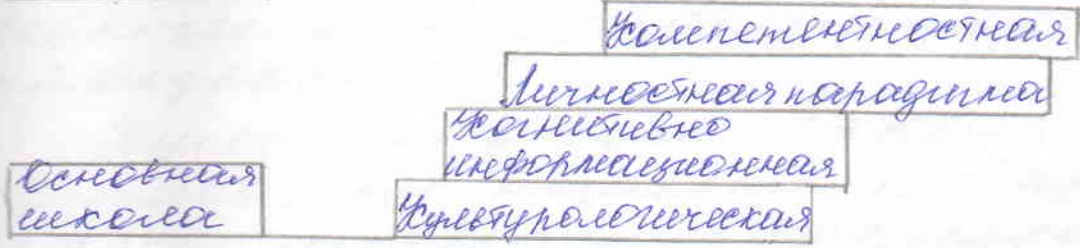 Компетентностная
Личностная парадигма
Когнитивно
информационная
Основная
школа
Культурологическая